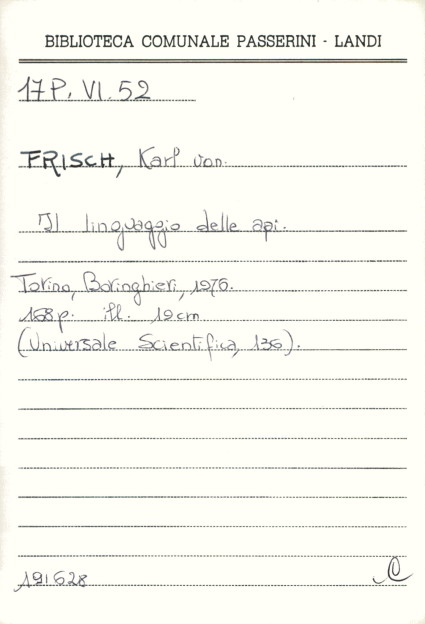 BIBLIOTECA COMUNALE PASSERINI - LANDI
17 P. VI. 52
FRISCH, Karl von.
Il linguaggio delle api.
Torino, Boringhieri, 1976.
168 p. ill. 19 cm
(Universale Scientifica, 136).
191628